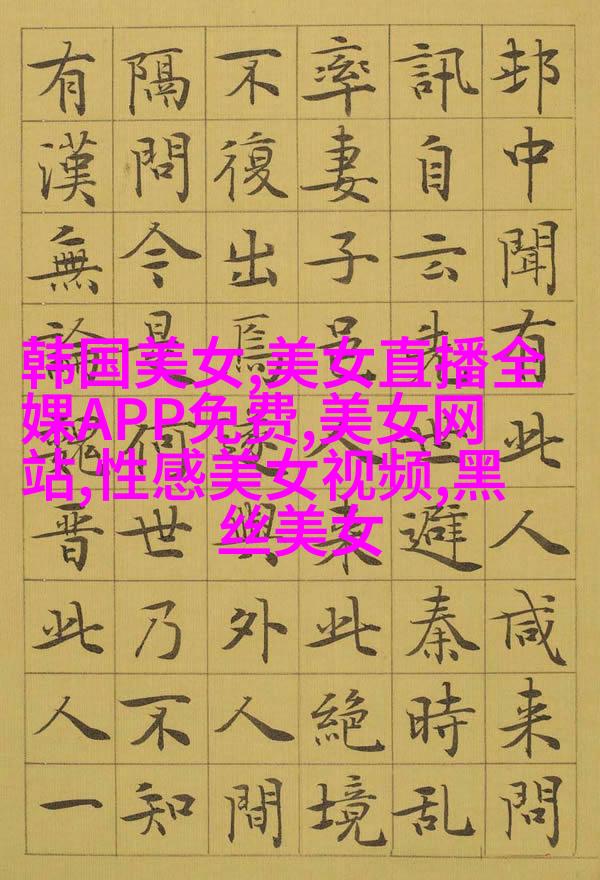 邨中聞有此人咸来問
訊自云先世避秦時乱
率妻子邑人来此絶境
不復出焉遂與外人間
隔問今是何世乃不知
有漢無論魏晋此人一
韩国美女,美女直播全
婐APP免费,美女网
站,性感美女视频,黑
丝美女